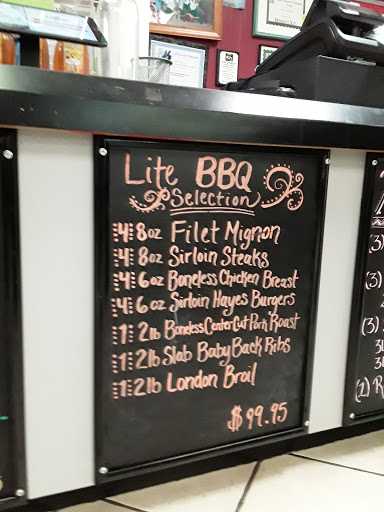 Lite BBQ
Selection
4 8oz Filet Mignon
4 8oz Sirloin Steaks
4 6oz Boneless Chicken Breast
4 6oz Sirloin Hayes Burgers
1 2lb Boneless Center Cut Pork Roast
1 2lb Slab Baby Back Ribs
1 2lb London Broil
$99.95
(3)
(3)
(3)
(2) R